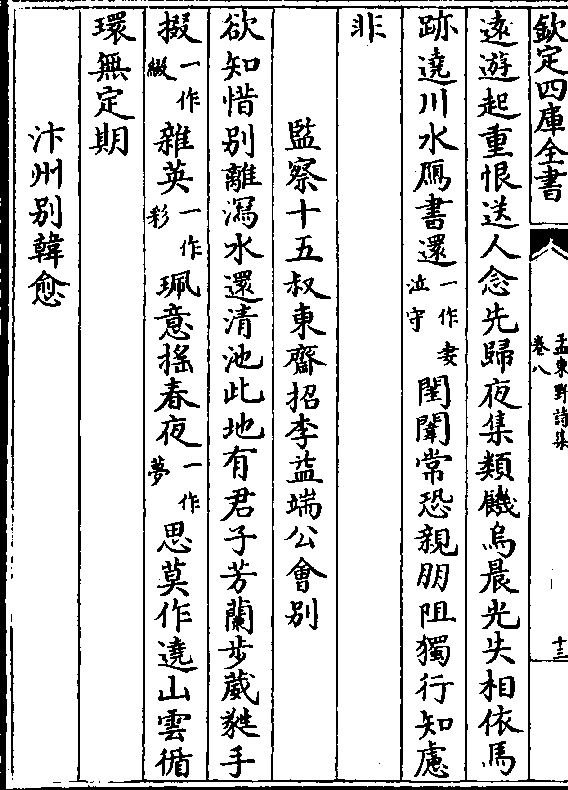 欽定四庫全書
孟東野詩集
卷八
十三
遠遊起重恨送人念先歸夜集類饑烏晨光失相依馬
跡遶川水鴈書還一作妾泣守閨闈常恐親朋阻獨行知慮
非
監察十五叔東齋招李益端公會別
欲知惜别離瀉水還清池此地有君子芳蘭步葳蕤手
掇一作綴雜英一作彩珮意摇春夜一作夢思莫作遶山雲循
環無定期
汴州别韓愈